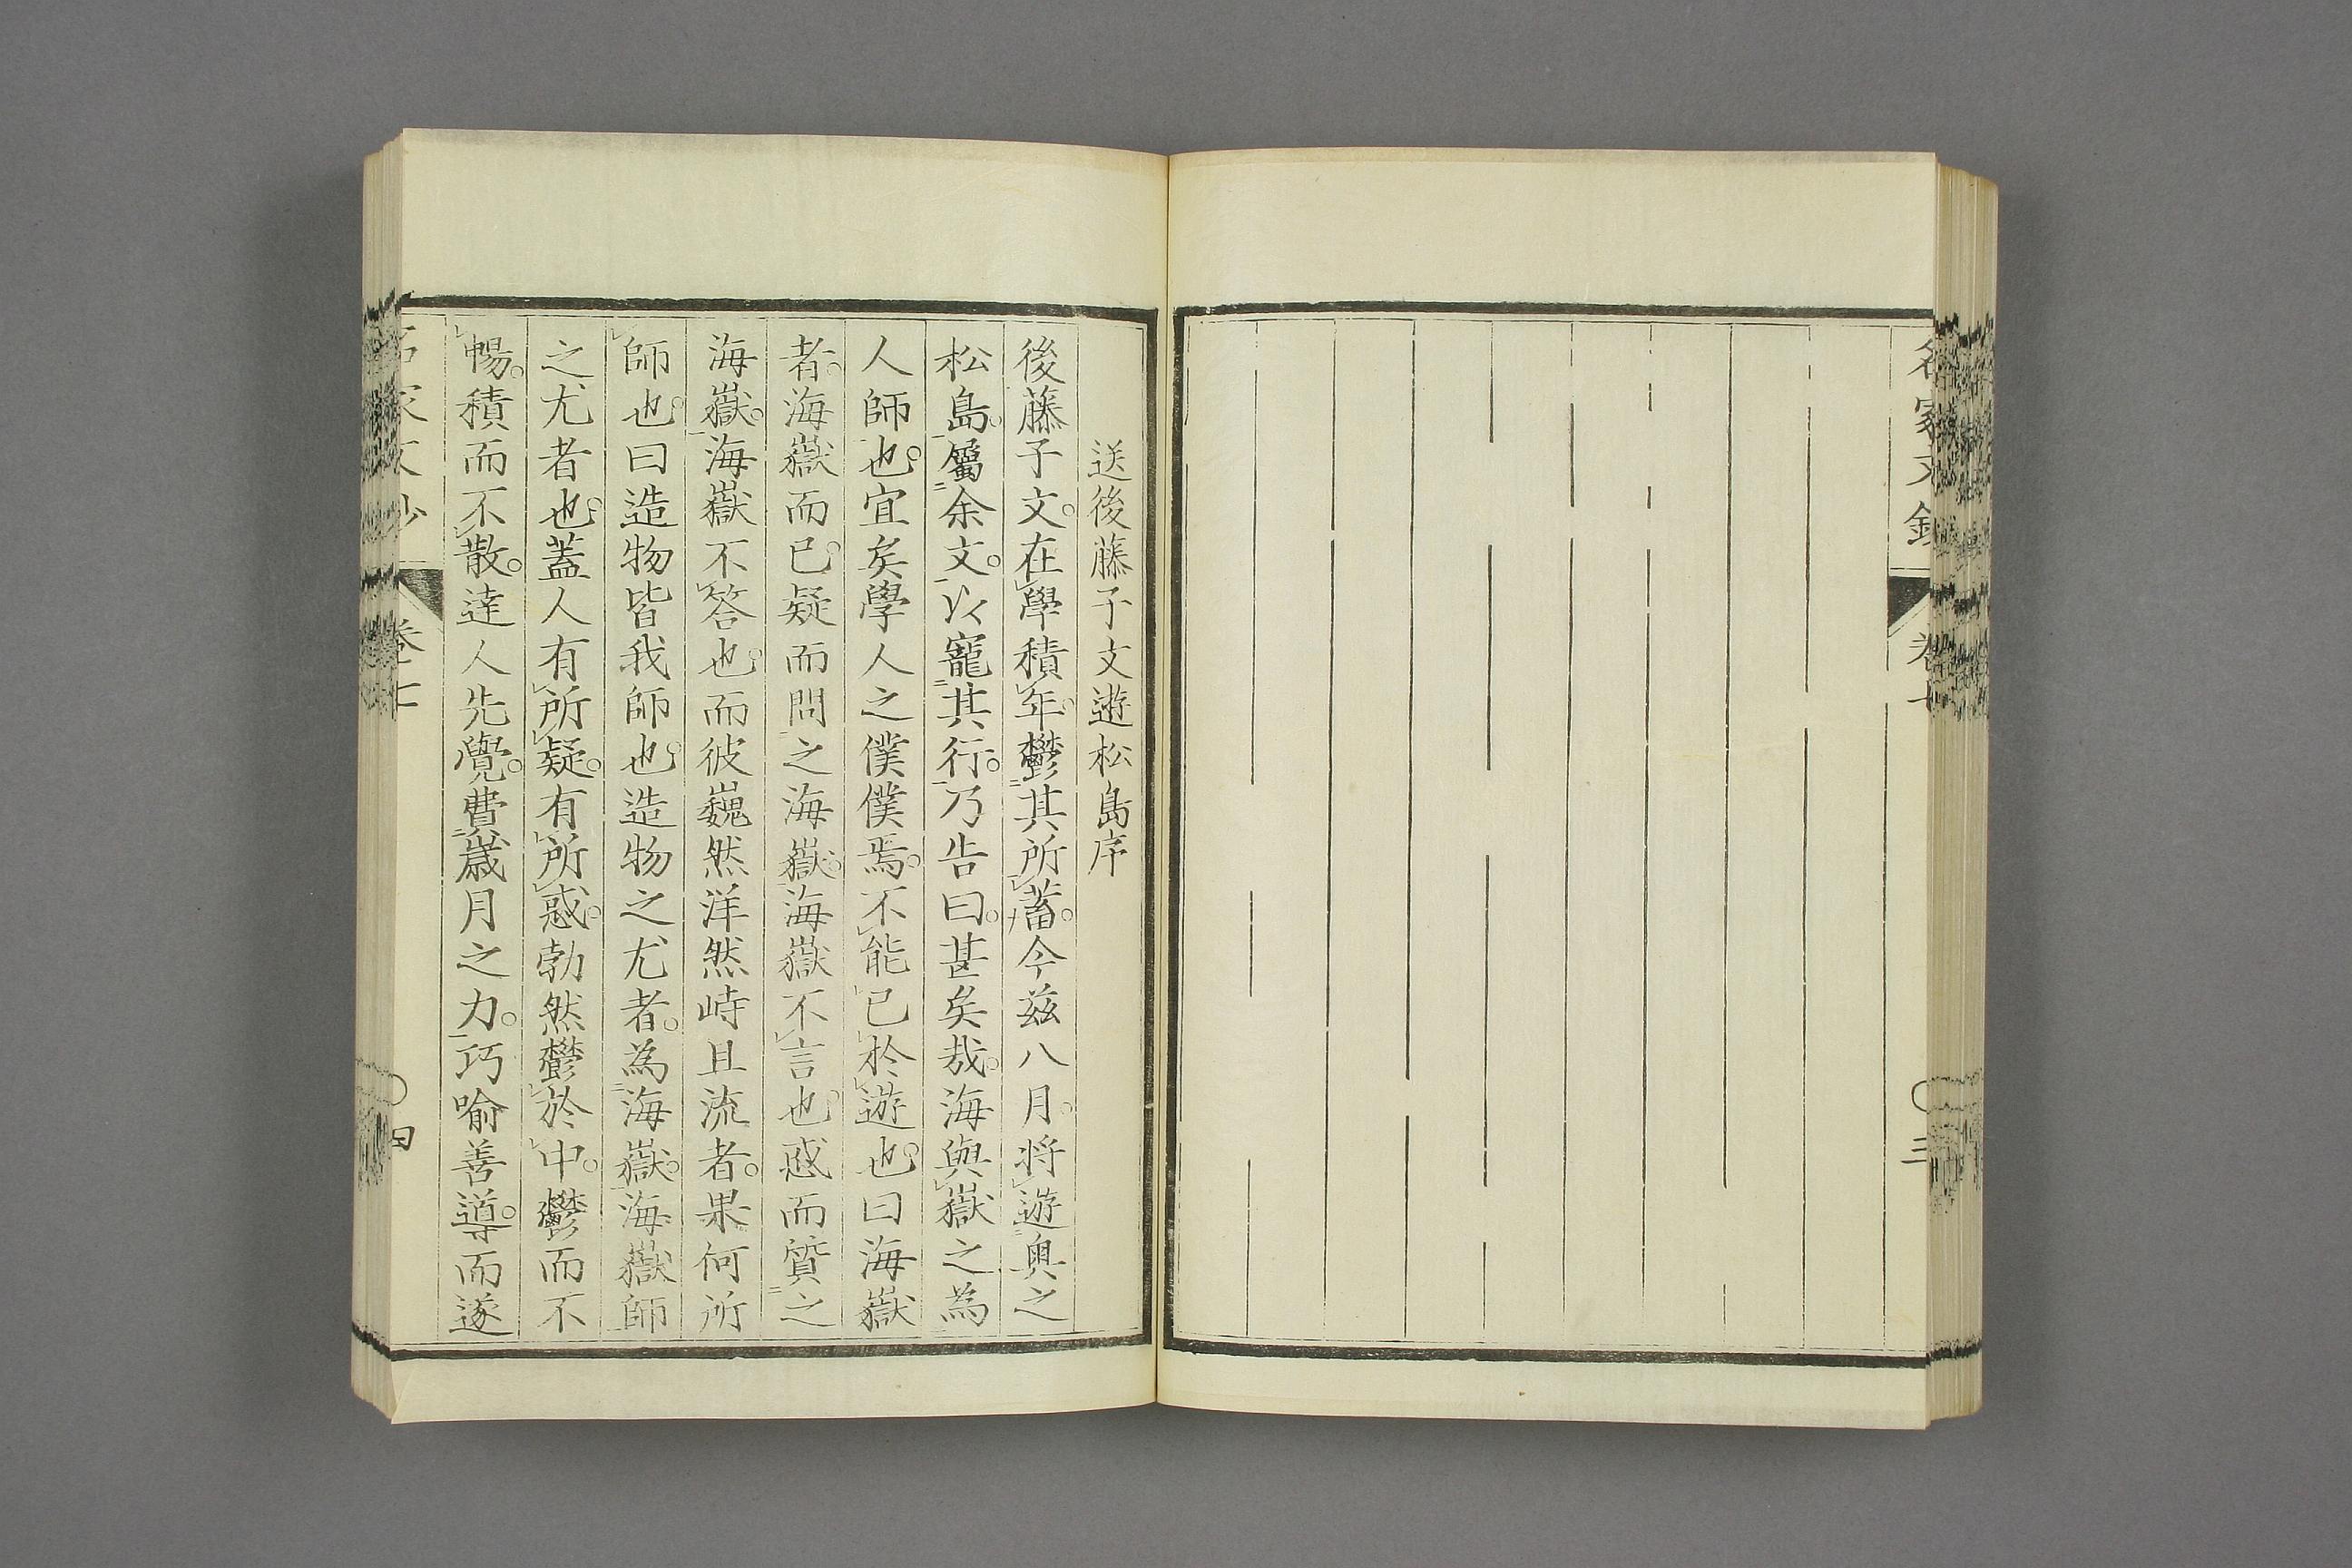 名家文鈔 卷七 三
送後藤子文遊松島序
後藤子文。在學積年。鬱其所蓄。今茲八月。將遊奧之
松島。屬余文。以寵其行。乃告曰。甚矣哉。海與嶽之為
人師也。宜矣學人之僕僕焉。不能已於遊也。曰海嶽
者。海嶽而已。疑而問之海嶽。海嶽不言也。惑而質之
海嶽。海嶽不答也。而彼巍然洋然峙且流者。果何所
師也。曰造物皆我師也。造物之尤者。為海嶽。海嶽師
之尤者也。蓋人有所疑。有所惑。勃然鬱於中。鬱而不
暢。積而不散。達人先覺。費歲月之力。巧喻善導。而遂
名家文鈔 卷七 四